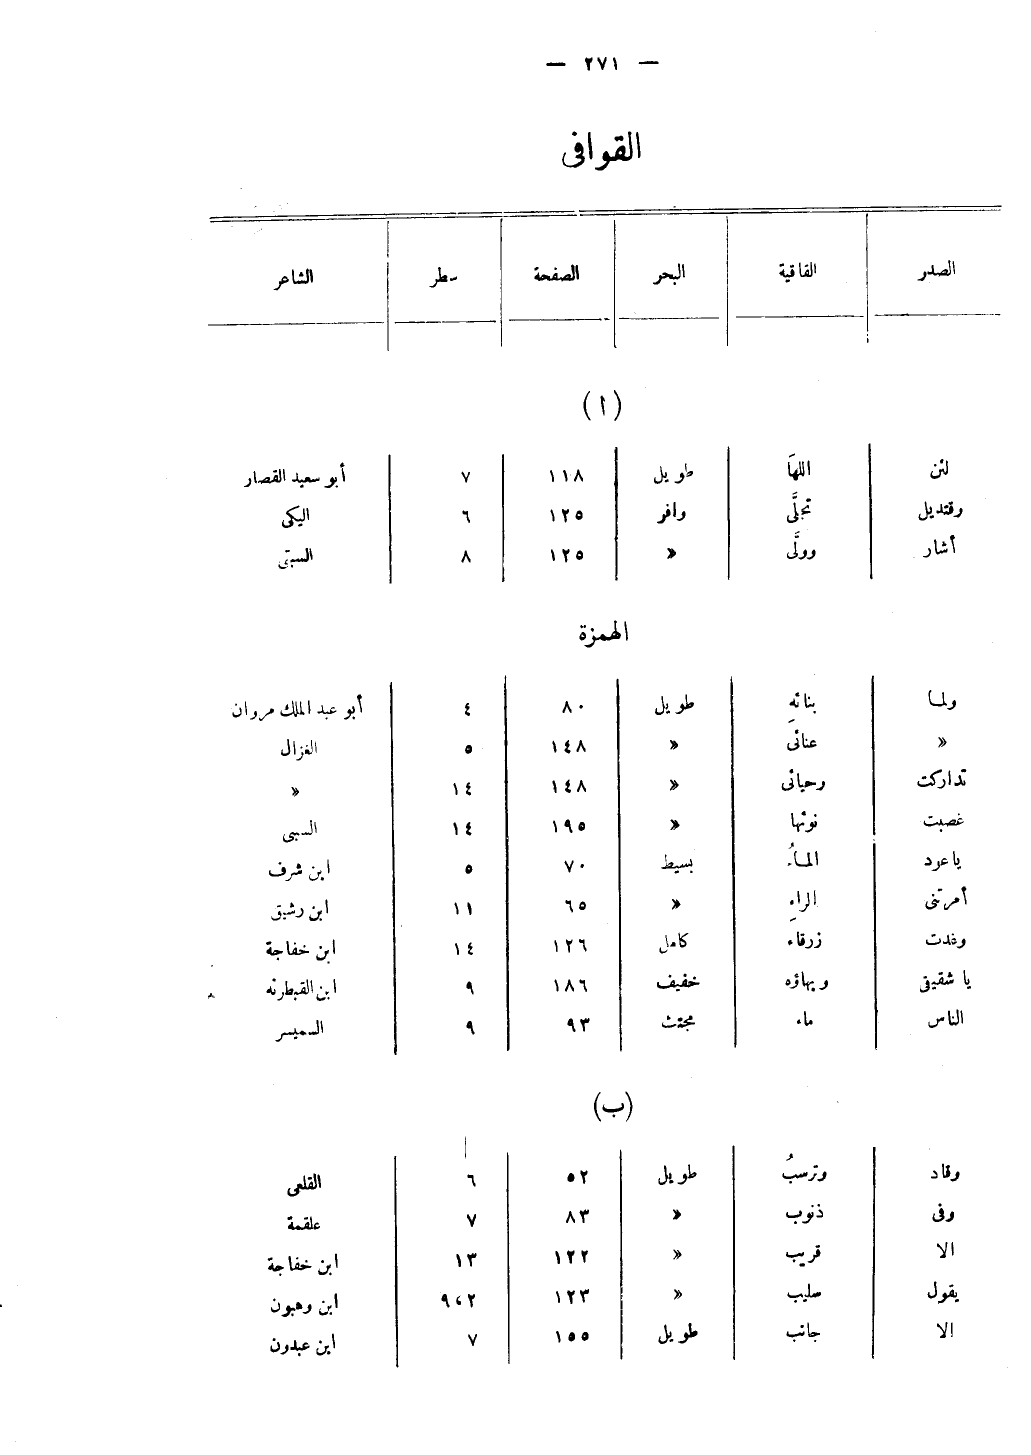 — ٢٧١ —
القوافى
الصدر القافية البحر الصفحة سطر الشاعر
(ا)
لئن اللهَا طويل ١١٨ ٧ أبو سعيد القصار
وقنديل تجلَّى وافر ١٢٥ ٦ اليكى
أشار وولَّى » ١٢٥ ٨ السبتى
الهمزة
ولما بنائهِ طويل ٨٠ ٤ أبو عبد الملك مروان
» عنائى » ١٤٨ ٥ الغزال
تداركت وحيائى » ١٤٨ ١٤ »
غصبت نوئها » ١٩٥ ١٤ السبى
ياعود الماءُ بسيط ٧٠ ٥ ابن شرف
أمرتنى الراءِ » ٦٥ ١١ ابن رشيق
وغدت زرقاء كامل ١٢٦ ١٤ ابن خفاجة
يا شقيقى وبهاؤه خفيف ١٨٦ ٩ ابن القبطرنه
الناس ماء مجتث ٩٣ ٩ السميسر
(ب)
وقاد وترسبُ طويل ٥٢ ٦ القلعى
وفى ذنوب » ٨٣ ٧ علقمة
الا قريب » ١٢٢ ١٣ ابن خفاجة
يقول سليب » ١٢٣ ٩،٢ ابن وهبون
الا جانب طويل ١٥٥ ٧ ابن عبدون